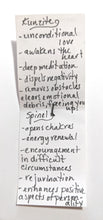 Kunzite
- unconditional
love
- awakens the heart
- deep meditation
- dispels negativity
- removes obstacles
- clears emotional
debris, freeing you
up!
Spinel
- opens chakras
- energy renewal
- encouragement
in difficult
circumstances
- rejuvination
- enhances positive
aspects of person-
ality